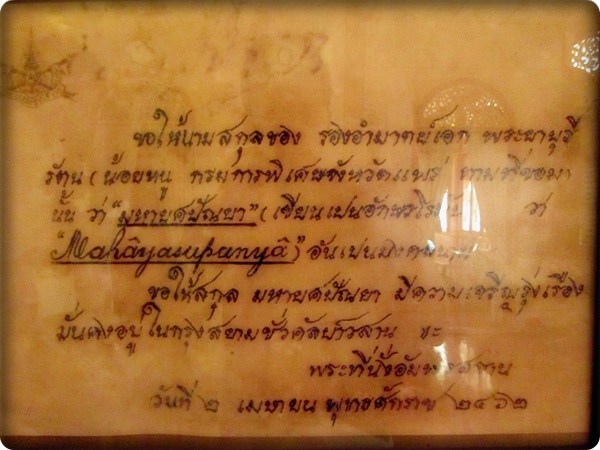 ขอให้นามสกุลของ รองอำมาตย์เอก พระยาบุรี
รัตน (น้อยหนู กรมการพิเศษจังหวัดแพร่ ตามที่ขอมา
นั้น ว่า “มหายศปัณยา” (เขียนเปนอักษรโรมัน ว่า
“Mahâyasapanyâ”) อันเปนมงคลนาม
ขอให้สกุล มหายศปัณยา มีความเจริญรุ่งเรือง
มั่นคงอยู่ในกรุงสยามชั่วกัลปาวสาน ฯะ
พระที่นั่งอัมพรสถาน
วันที่ ๒ เมษายน พุทธศักราช ๒๔๖๒